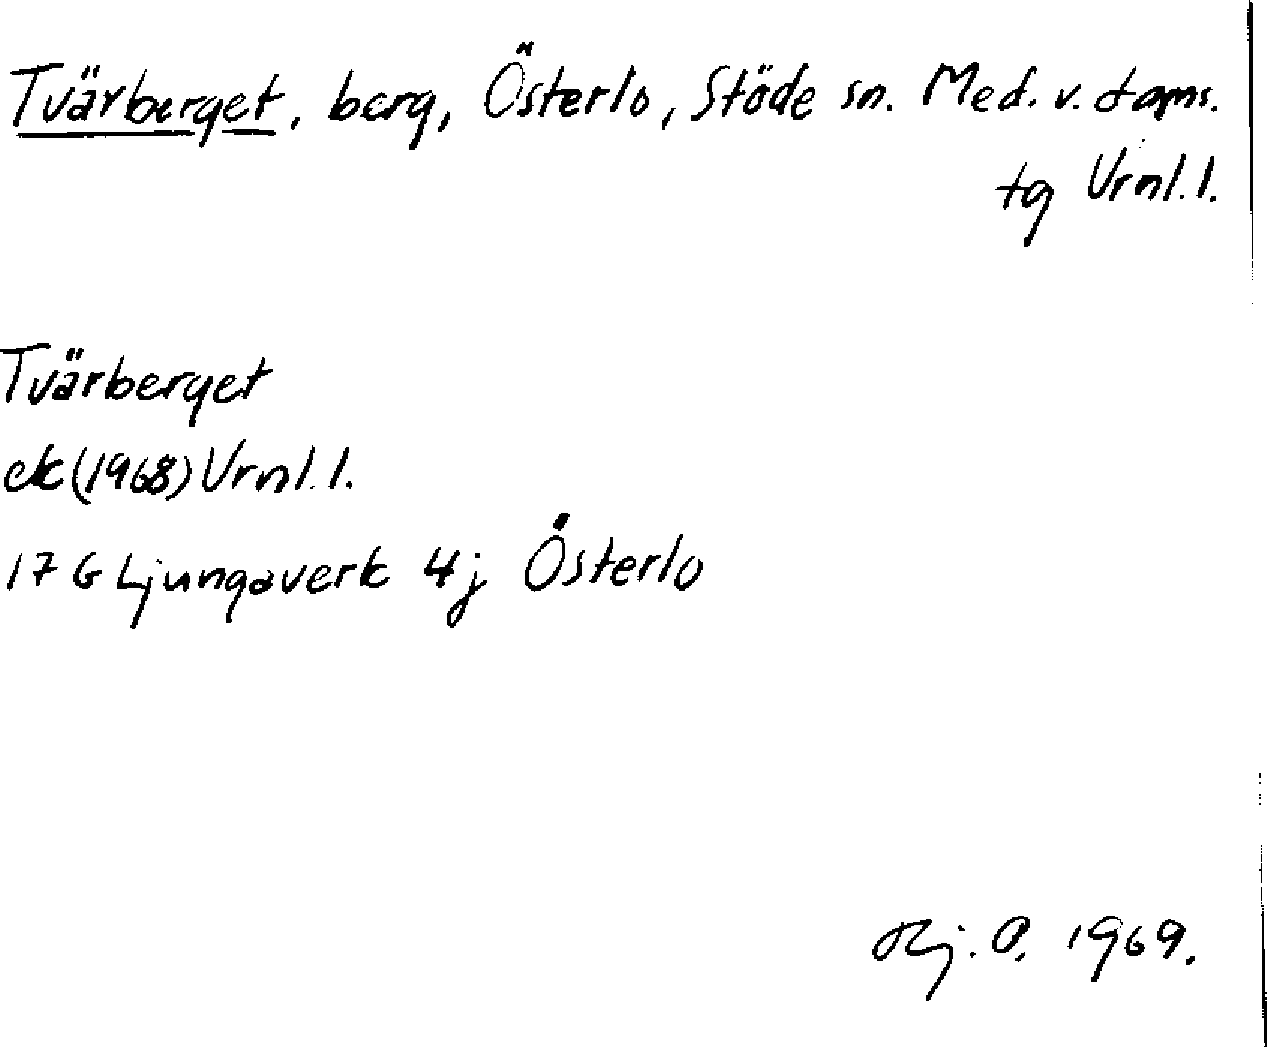 Tvärberget, berg, Österlo, Stöde sn. Med. v. doms.
tg Vrnl. l.
Tvärberget
ek (1968) Vrnl. l.
17 G Ljungaverk 4j Österlo
1969.